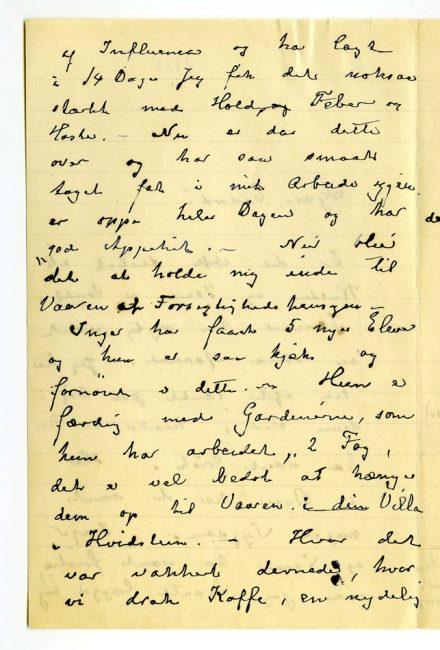 af Influenca og har lagt
i 14 Dage Jeg fik det noksaa
stærkt med Hold, og Feber og
Hoste. – Nu er da dette
over og har saa smaat
taget fat i mit Arbeide igjen.
er oppe hele Dagen og har
god Appetit. – Nu blir
det at holde mig inde til
Vaaren af Forsigtighedshensyn –
Inger har faaet 5 nye Elever
og hun er saa kjæk og
fornöiet i dette. – Hun er
færdig med Gardinerne, som
hun har arbeidet, 2 Fag,
det er vel bedst at hænge
dem op til Vaaren. i din Villa
i Hvidsten. – Hvor det
var vakkert dernede, hvor
vi drak Kaffe, en nydelig